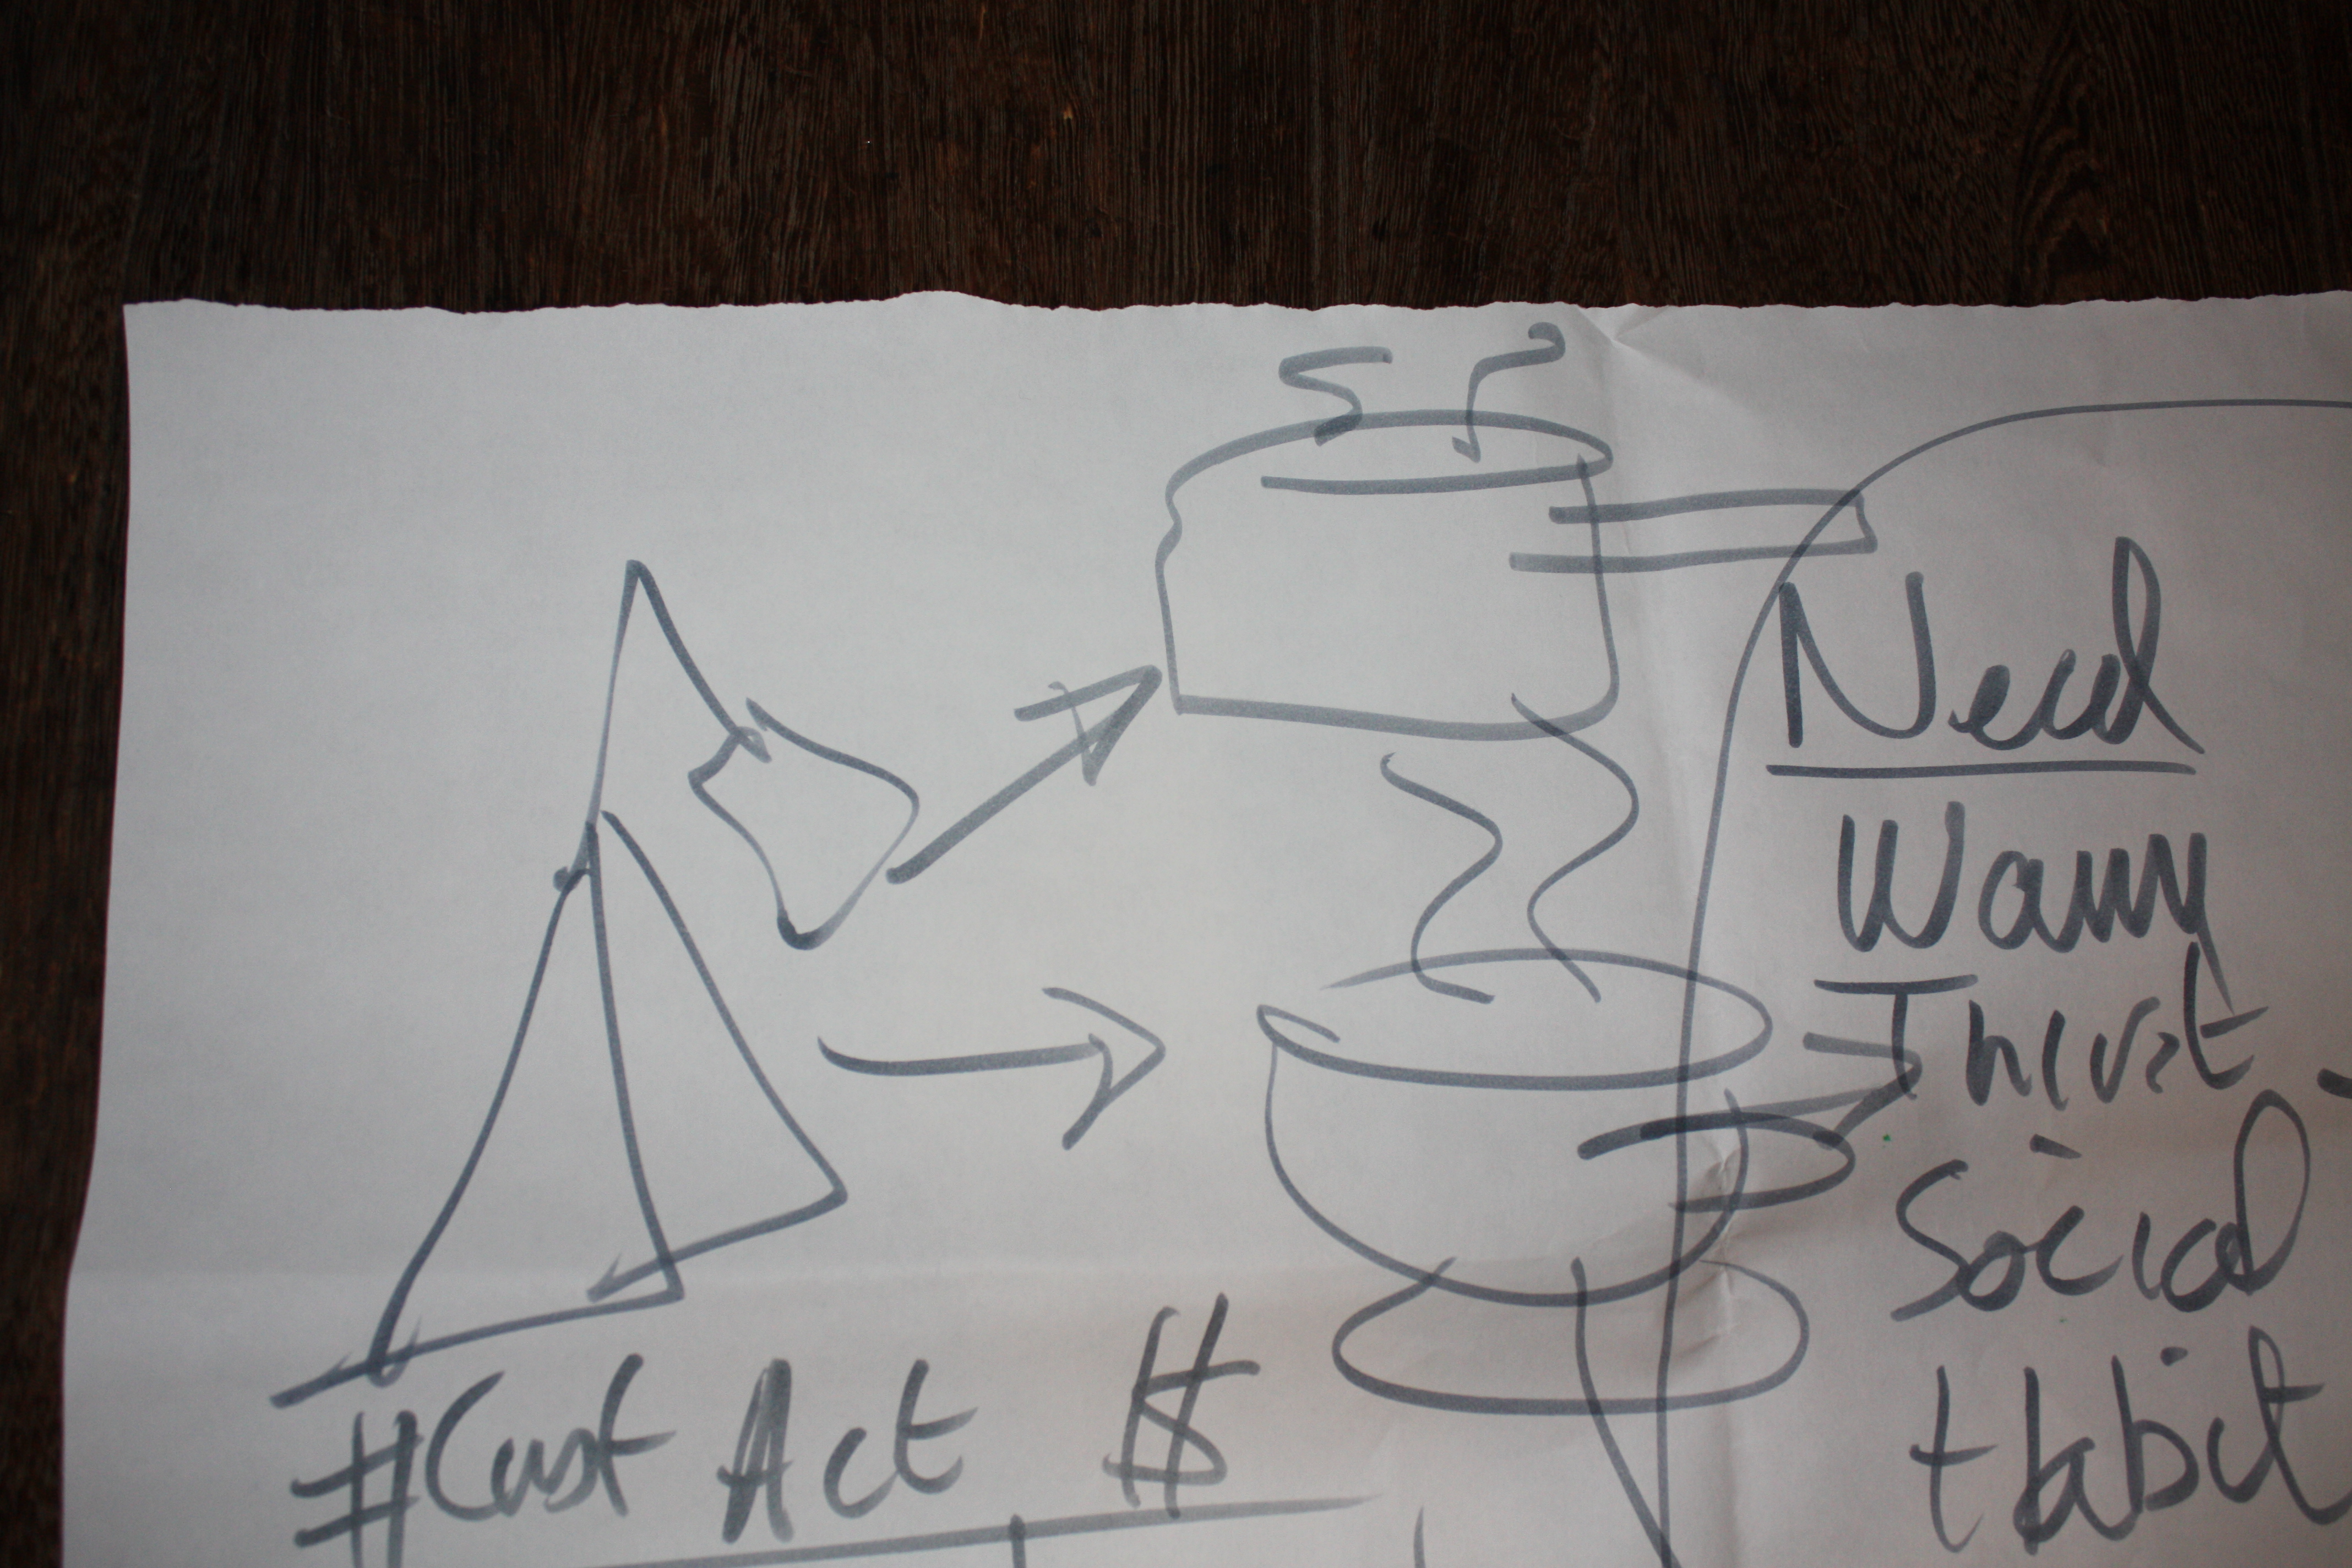 Need
Warm
Thirst
Social
Habit
#Cust Act $